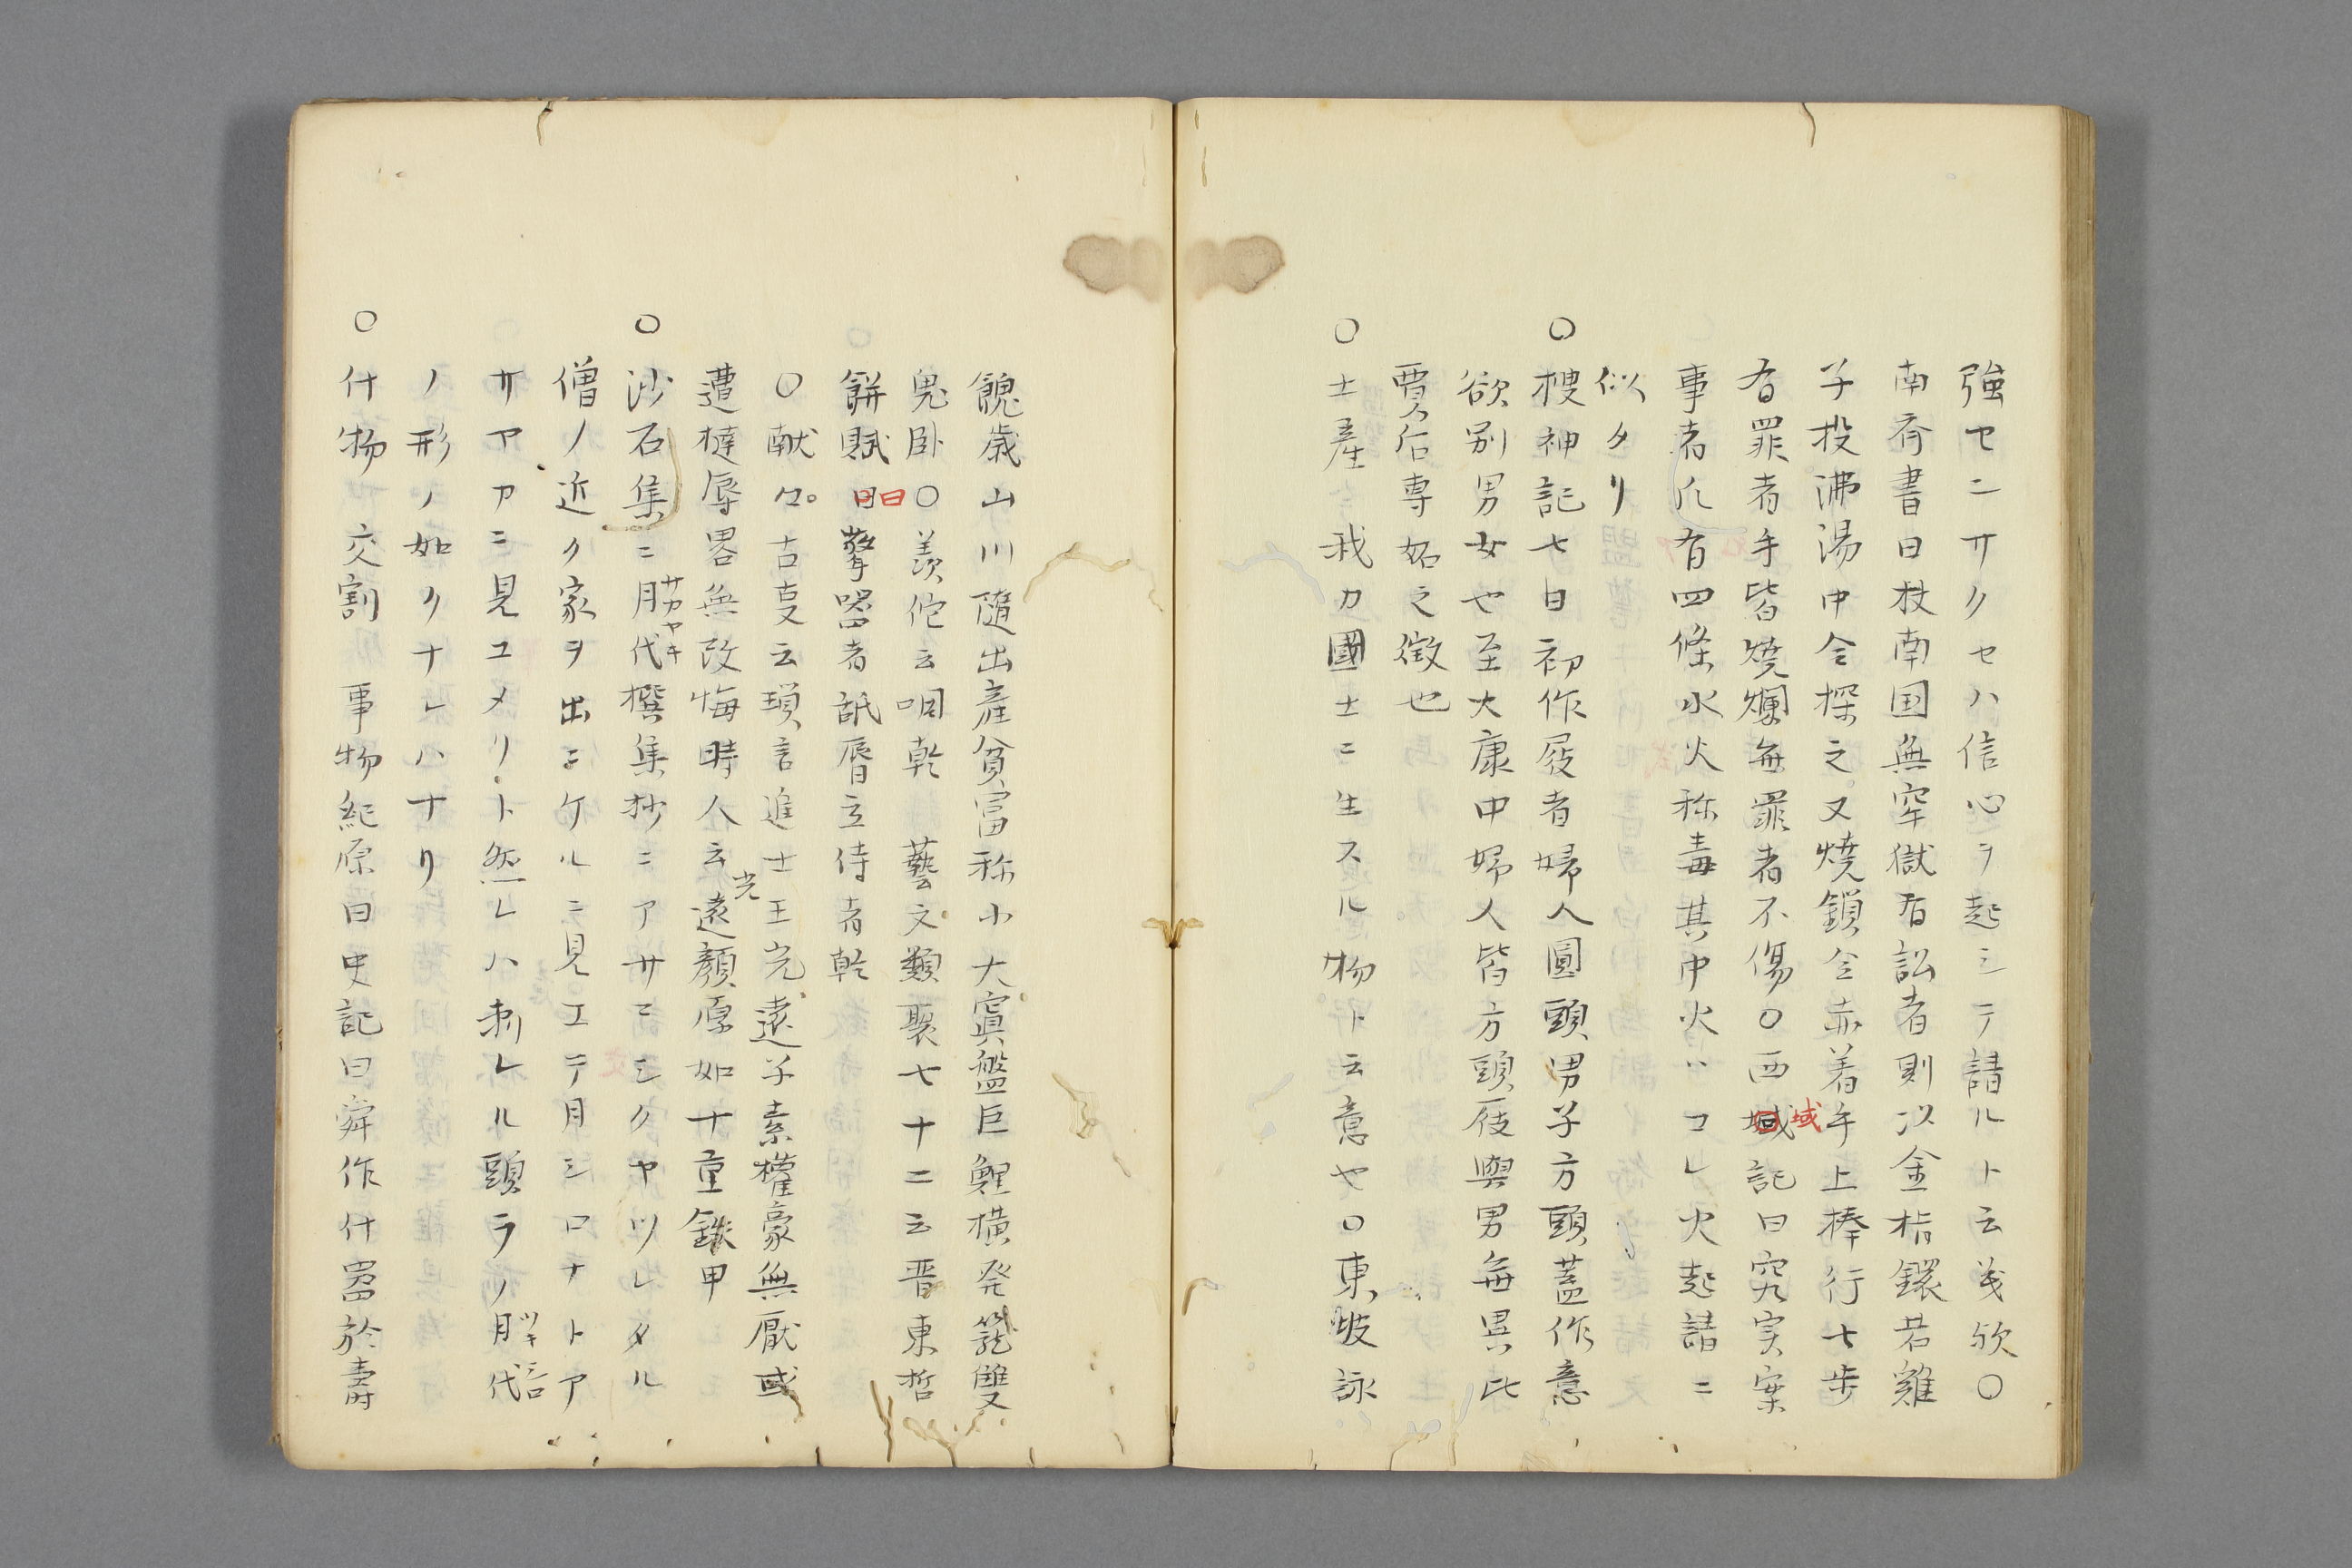 強セニサクセハ信心ヲ起シテ請ルト云義欤○
南斉書曰扶南国無牢獄有訟者則以金指鐶若雞
子投沸湯中令探之又焼鎖令赤着手上捧行七歩
有罪者手皆焼爛無罪者不傷○西域記曰究実案
事者凡有四條水火称毒其中火ハコレ火起請ニ
似タリ
○搜神記七曰初作屐者婦人圓頭男子方頭蓋作意
欲別男女也至大康中婦人皆方頭屐與男無異此
賈后専妬之徴也
○土産 我カ國土ニ生スル物ト云意也○東坡詠
餽歳山川隨出産貧富称小大寘盤巨鯉横発籠雙
兎卧○羨佗云咽乾 藝文類聚七十二云晋東晳
餅賦曰擎器者䑛脣立侍者乾
○献々古叓云瑣言進士王光遠子素權豪無厭或
遭撻辱畧無改悔時人云光遠顔厚如十重鉄甲
○沙石集ニ月代サカヤキ撰集抄ニアサマシクヤツレタル
僧ノ近ク家ヲ出ニケルニ見エテ月シロナトア
サヤカニ見ユメリト然レハ剃レル頭ラノ月代ツキシロ
ノ形ノ如クナレハナリ
○什物 交割 事物紀原曰史記曰舜作什噐於壽